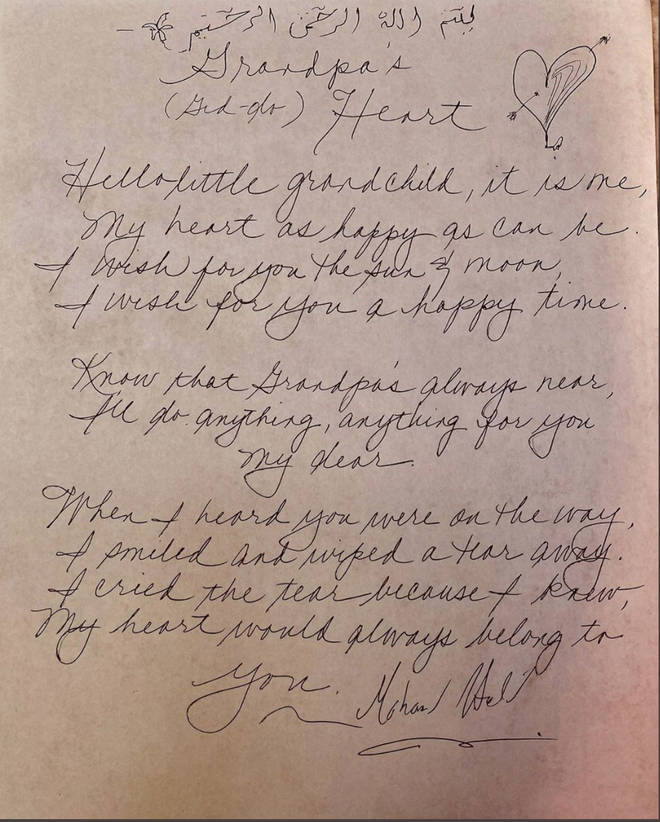 بِسْمِ اللهِ الرَّحْمٰنِ الرَّحِيْمِ
Grandpa's
(Gid-do) Heart
Hello little grandchild, it is me,
My heart as happy as can be.
I wish for you the sun & moon,
I wish for you a happy time.
Know that Grandpa's always near,
I'll do anything, anything for you
my dear.
When I heard you were on the way,
I smiled and wiped a tear away.
I cried the tear because I knew,
My heart would always belong to
you.